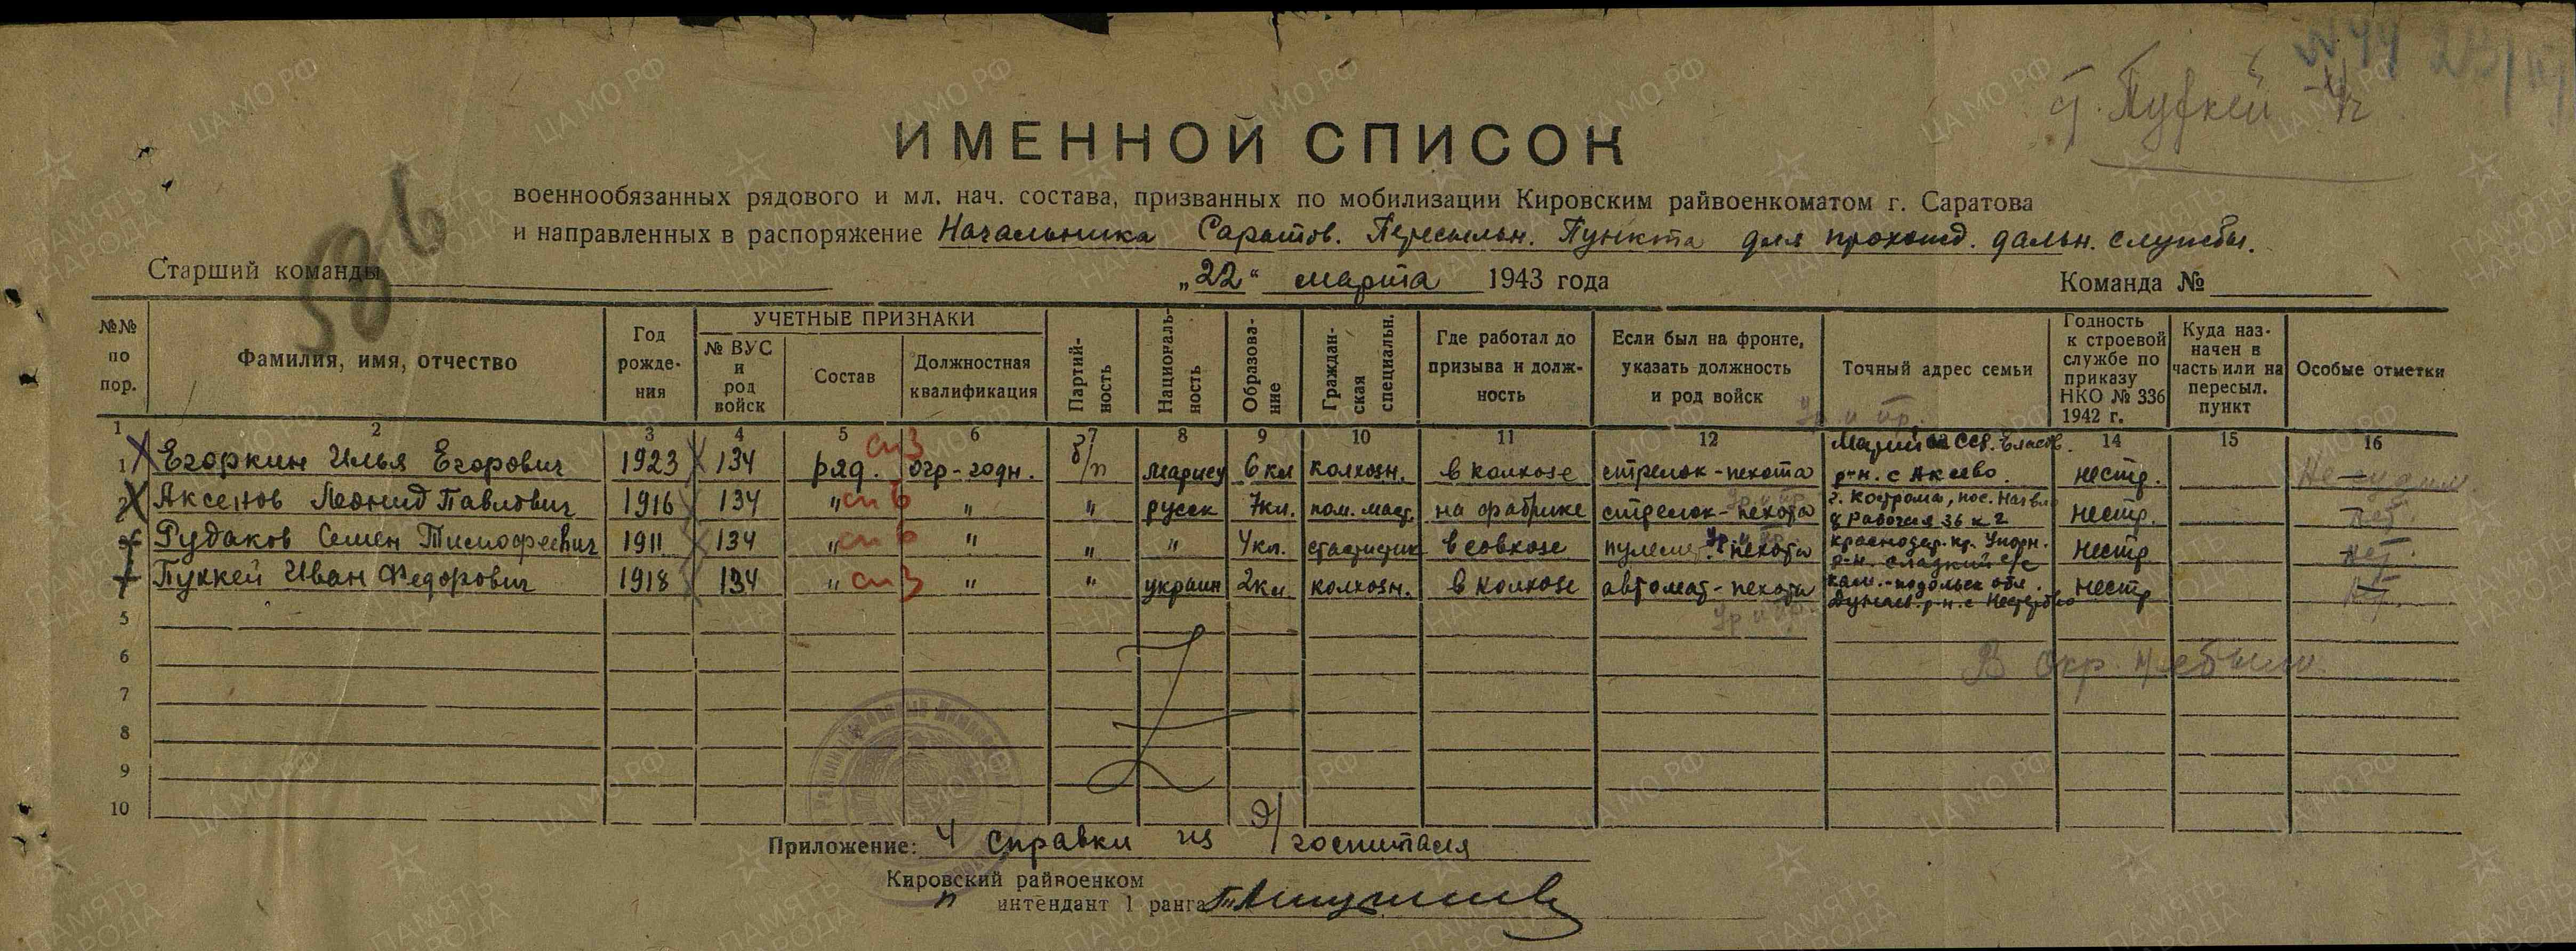 № 44 23/III
ИМЕННОЙ СПИСОК
военнообязанных рядового и мл. нач. состава, призванных по мобилизации Кировским райвоенкоматом г. Саратова
и направленных в распоряжение Начальника Саратов. Пересыльн. Пункта для прохожд. дальн. службы.
Старший команды „22“ марта 1943 года Команда №
№№ по пор. Фамилия, имя, отчество Год рожде-ния УЧЕТНЫЕ ПРИЗНАКИ № ВУС и род войск Состав Должностная квалификация Партий-ность Националь-ность Образова-ние Граждан-ская специальн. Где работал до призыва и долж-ность Если был на фронте, указать должность и род войск Точный адрес семьи Годность к строевой службе по приказу НКО № 336 1942 г. Куда наз-начен в часть или на пересыл. пункт Особые отметки
1 2 3 4 5 6 7 8 9 10 11 12 13 14 15 16
1 Егоркин Илья Егорович 1923 134 ряд. огр-годн. б/п мариец 6 кл колхозн. в колхозе стрелок-пехота Марийск ССР. р-н. с Аксево. нестр.
2 Аксенов Леонид Павлович 1916 134 „ „ „ русск 7кл. пом. маст. на фабрике стрелок-пехота г. Кострома, пос. Рабочая 36 к 2 нестр. нет.
3 Рудаков Семен Тимофеевич 1911 134 „ „ „ „ 4кл. статистик в совхозе пулемет. пехота краснодар. кр. Упорн. р-н. сладкий с/с нестр нет.
4 Пуккей Иван Федорович 1918 134 „ „ „ украин 2кл колхозн. в колхозе автомат-пехота кам.-подольск обл. Дунаев. р-н. с нестр нет.
5
6
7
8
9
10
Приложение: 4 справки из э/госпиталя
Кировский райвоенком
интендант 1 ранга
ЦА МО РФ
ПАМЯТЬ НАРОДА